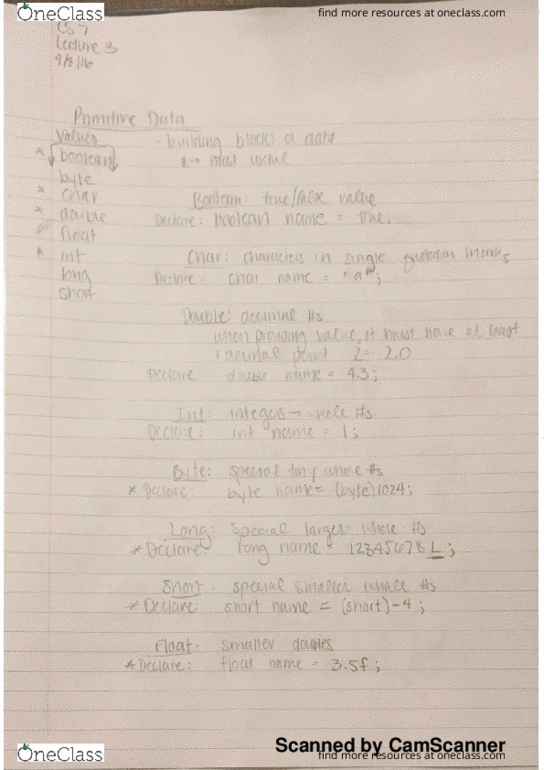 OneClass
find more resources at oneclass.com
CS-7
Lecture 3
9/8/16
Primitive Data
Values - building blocks of data
* boolean * → most useful
byte
* char Boolean: true/false value
* double Declare: boolean name = true;
float
* int Char: characters in single quotation marks
long Declare: char name = "a";
short
Double: decimal #s
when providing value, it must have at least
1 decimal point 2 = 2.0
Declare double name = 4.3;
Int: integers → whole #s
Declare: int name = 1;
Byte: special tiny whole #s
* Declare: byte name = (byte)1024;
Long: special larger whole #s
* Declare long name = 12345678L;
Short - special smaller whole #s
* Declare: short name = (short)-4;
Float: smaller doubles
* Declare: float name = 3.5f;
Scanned by CamScanner
OneClass
find more resources at oneclass.com